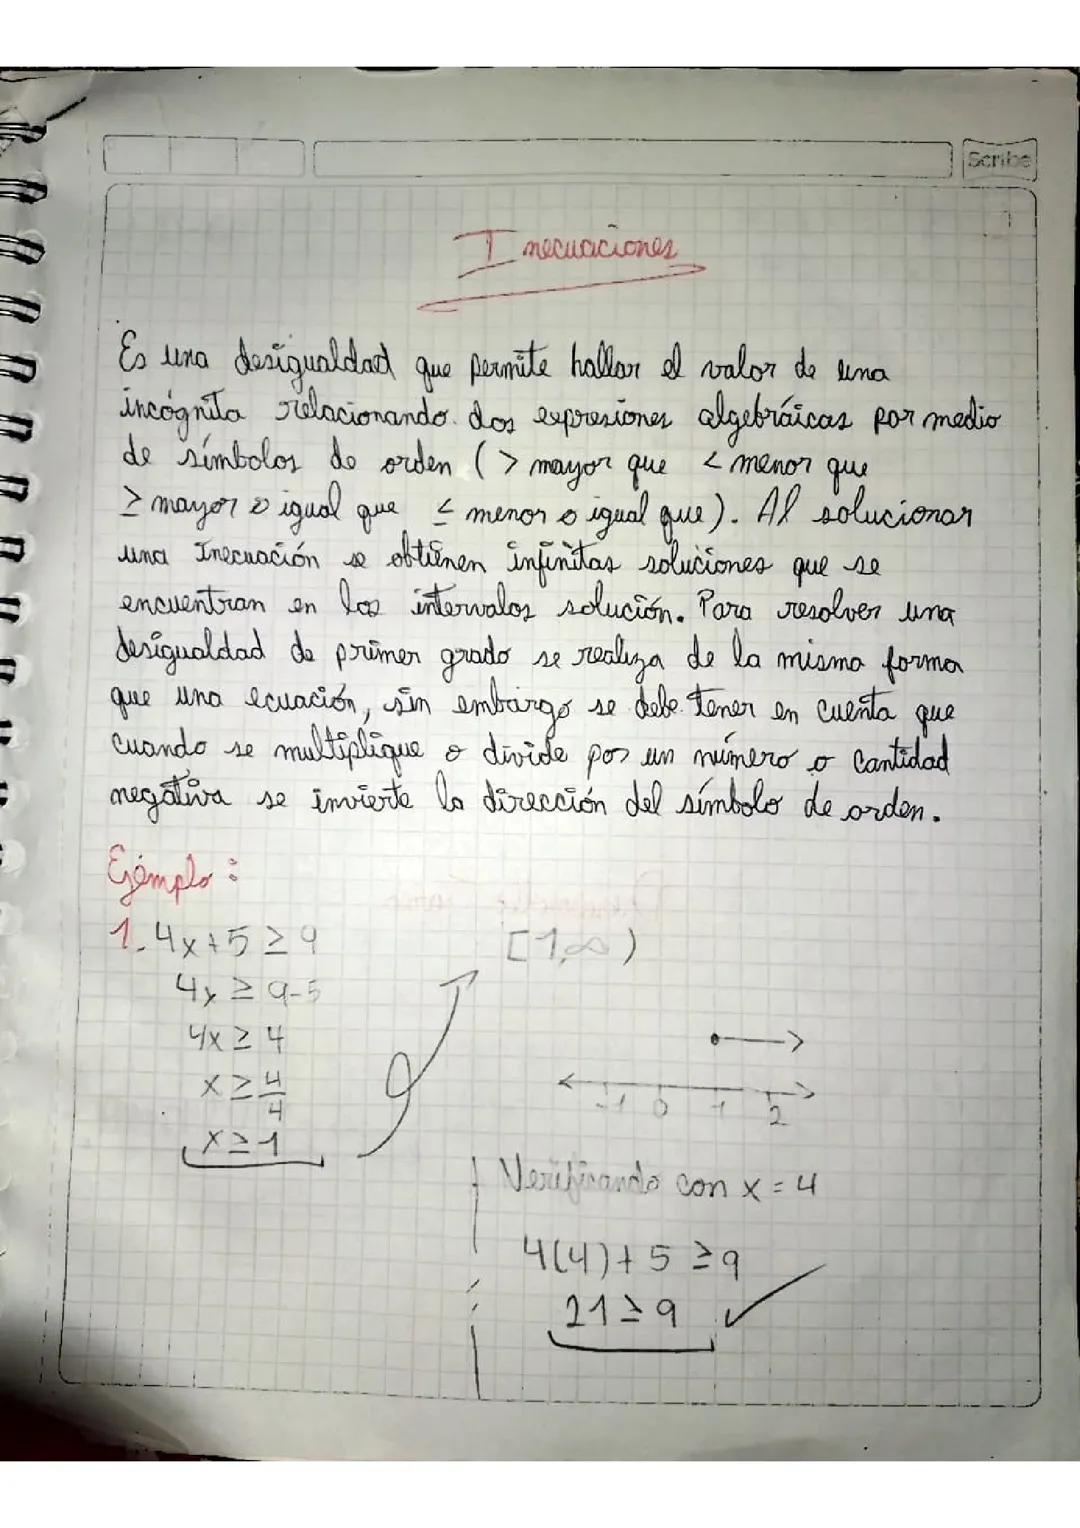 Scribe
Inecuaciones
Es una desigualdad que permite hallar el valor de una
incógnita relacionando dos expresiones algebráicas por medio
de símbolos de orden ( > mayor que < menor que
≥ mayor o igual que ≤ menor o igual que). Al solucionar
una Inecuación se obtienen infinitas soluciones que se
encuentran en los intervalos solución. Para resolver una
desigualdad de primer grado se realiza de la misma forma
que una ecuación, sin embargo se debe tener en cuenta que
cuando se multiplique o divide por un número o cantidad
negativa se invierte la dirección del símbolo de orden.
Ejemplo:
1. 4x+5 ≥ 9
4x ≥ 9-5
4x ≥ 4
x ≥ 4/4
x ≥ 1
[1,∞)
-1 0 1 2
Verificando con x = 4
4(4)+5 ≥ 9
21 ≥ 9 ✓